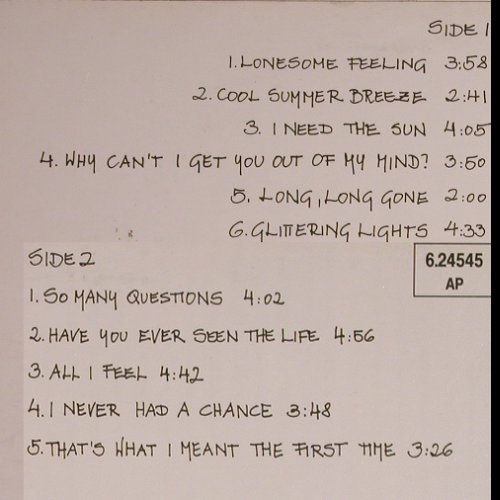 SIDE 1
1. LONESOME FEELING 3:58
2. COOL SUMMER BREEZE 2:41
3. I NEED THE SUN 4:05
4. WHY CAN'T I GET YOU OUT OF MY MIND? 3:50
5. LONG, LONG GONE 2:00
6. GLITTERING LIGHTS 4:33
SIDE 2
6.24545
AP
1. SO MANY QUESTIONS 4:02
2. HAVE YOU EVER SEEN THE LIFE 4:56
3. ALL I FEEL 4:42
4. I NEVER HAD A CHANCE 3:48
5. THAT'S WHAT I MEANT THE FIRST TIME 3:26